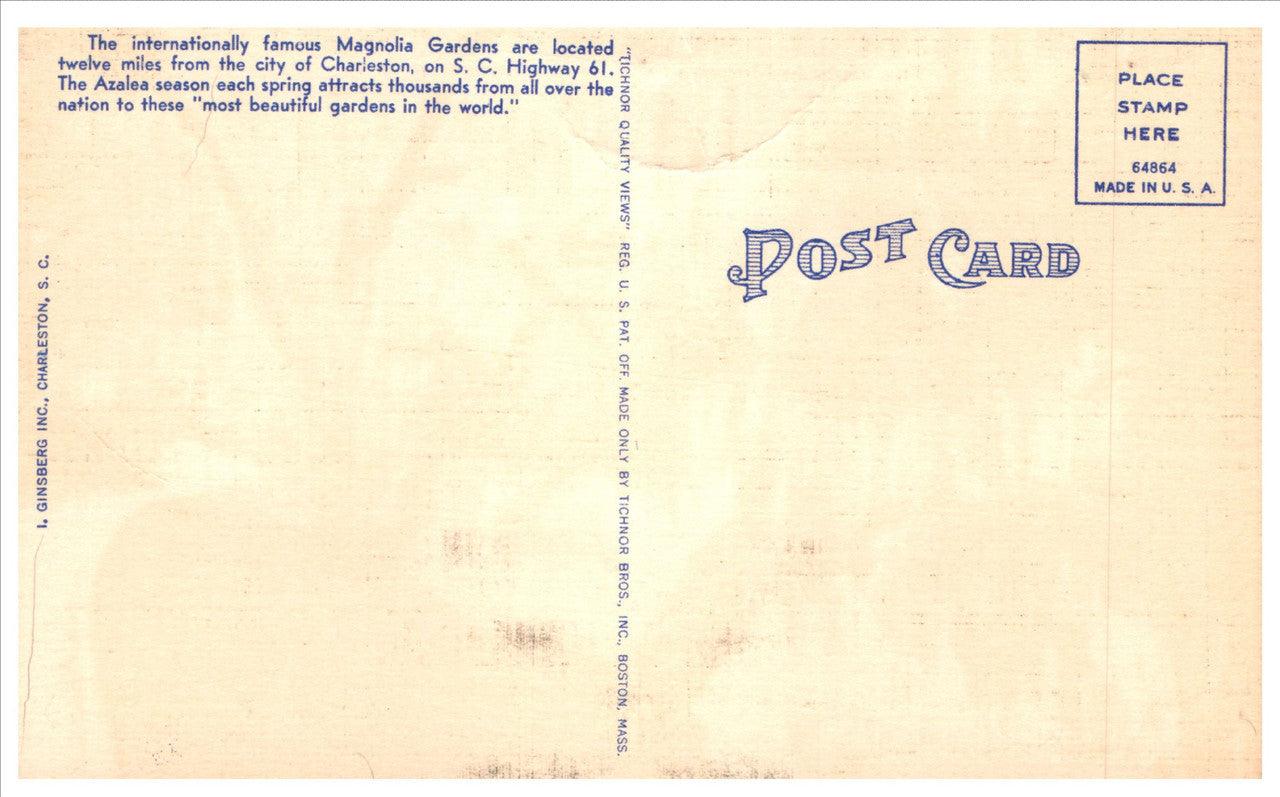 The internationally famous Magnolia Gardens are located
twelve miles from the city of Charleston, on S. C. Highway 61.
The Azalea season each spring attracts thousands from all over the
nation to these "most beautiful gardens in the world."
I. GINSBERG INC., CHARLESTON, S. C.
"TICHNOR QUALITY VIEWS" REG. U. S. PAT. OFF. MADE ONLY BY TICHNOR BROS., INC., BOSTON, MASS.
PLACE
STAMP
HERE
64864
MADE IN U. S. A.
POST CARD